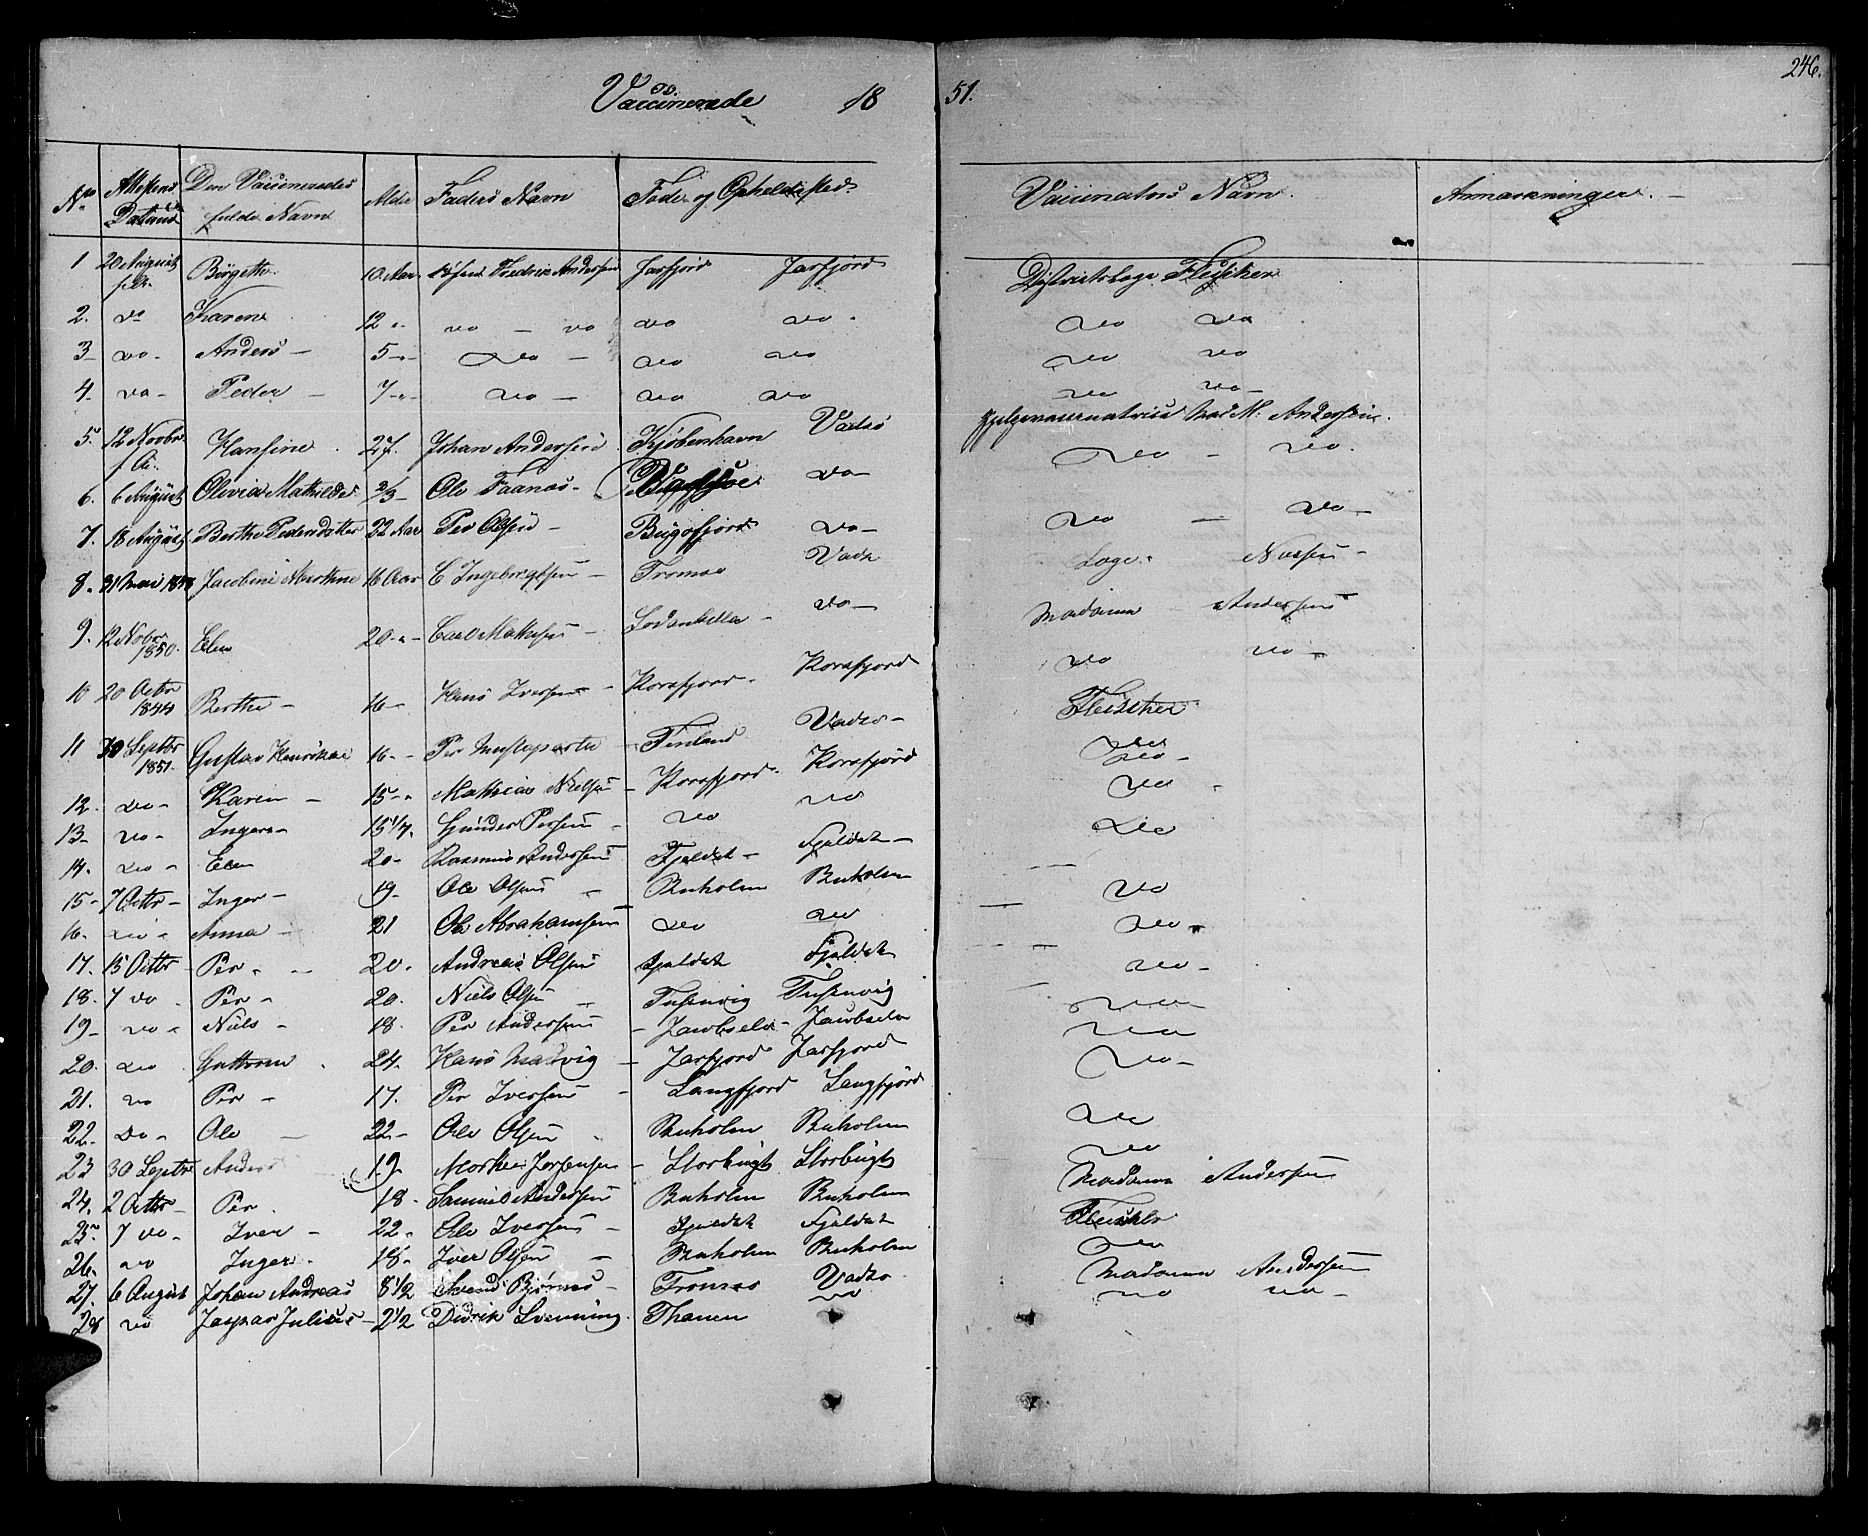 246.
Vaccinerede 1851.
No. Attestens Datum Den Vaccineredes fulde Navn Alder Faders Navn Føde og Opholdssted Vaccinators Navn Anmærkninger.
1 20 August Børgethe 10 Aar Fredrik Andersen Jarfjord Jarfjord Districtslæge Fleischer
2. do Karen 12 " do do do do do do
3 do Anders 5 " do do do do do
4. do Peder 7 " do do do do do
5. 12 Novbr Hansine 27. Johan Andersen Kjøbenhavn Vadsø Hjelpevaccinatrice Mad M. Andersen.
6. 6 August Olivia Mathilde 2/3 Ole Faanæs Vadsøe do do do
7. 18 August Berthe Pedersdatter 22 Aar Per Olsen Bugøfjord do do do
8. 31 Mai 1848 Jacobine Marthine 16 Aar C Ingebrigtsen Tromsø Vadsø Læge Nissen
9. 12 Novbr 1850. Elen 20 " Carl Mathisen Sodankella do Madame Andersen
10 20 Octbr 1844 Berthe 16 Hans Iversen Korsfjord Korsfjord do do
11 30 Septbr 1851. Gustav Henrik 16 Per Finland Vadsø Fleischer
12. do Karen 15 " Mathias Nielsen Korsfjord Korsfjord do
13 do Inger 15 1/7. Gunder Persen do do do
14. do Elen 20 Rasmus Andersen Fjeldet Fjeldet do
15 7 Octbr Inger 19 Ole Olsen Buholm Buholm do
16. do Anna 21 Ole Abrahamsen do do do
17. 15 Octbr Per 20. Andreas Olsen Fjeldet Fjeldet do
18. 7 do Per 20. Niels Olsen Tusenvig Tusenvig do
19 do Niels 18. Per Andersen Jacobselv Jacobselv do
20. do Guttorm 24. Hans Jarfjord Jarfjord do
21. do Per 17. Per Iversen Langfjord Langfjord do
22. do Ole 22 Ole Olsen Buholm Buholm do
23 30 Septbr Anders 19 Jørgensen Storbugt Storbugt Madame Andersen
24. 2 Octbr Per 18 Samuel Andersen Buholm Buholm Fleischer
25 7 do Iver 22 Ole Iversen Fjeldet Fjeldet do
26. do Inger 18 Iver Olsen Buholm Buholm
27. 6 August Johan Andreas 8 1/2 Svend Bjørnes Tromsø Vadsø Madame Andersen
28 do Jaspar Julius 2 1/2 Didrik Svenning. Thanen do do do